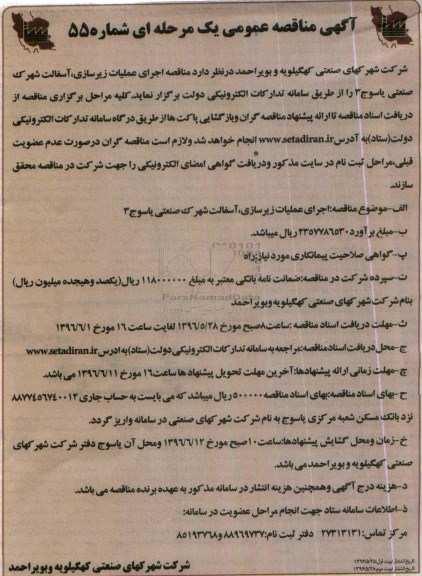 آگهی مناقصه عمومی یک مرحله ای شماره ۵۵
شرکت شهرکهای صنعتی کهگیلویه و بویراحمد درنظر دارد مناقصه اجرای عملیات زیرسازی،آسفالت شهرک
صنعتی یاسوج۳ را از طریق سامانه تدارکات الکترونیکی دولت برگزار نماید.کلیه مراحل برگزاری مناقصه از
دریافت اسناد مناقصه تا ارائه پیشنهاد مناقصه گران وبازگشایی پاکت ها از طریق درگاه سامانه تدارکات الکترونیکی
دولت(ستاد)به آدرس www.setadiran.ir انجام خواهد شد ولازم است مناقصه گران درصورت عدم عضویت
قبلی،مراحل ثبت نام در سایت مذکور ودریافت گواهی امضای الکترونیکی را جهت شرکت در مناقصه محقق
سازند.
الف-موضوع مناقصه:اجرای عملیات زیرسازی،آسفالت شهرک صنعتی یاسوج۳
ب-مبلغ برآورد ۲۳۵۷۷۸۶۵۳۰ ریال میباشد.
پ-گواهی صلاحیت پیمانکاری مورد نیاز:راه
ت-سپرده شرکت در مناقصه:ضمانت نامه بانکی معتبر به مبلغ ۱۱۸۰۰۰۰۰۰ ریال(یکصد وهیجده میلیون ریال)
بنام شرکت شهرکهای صنعتی کهگیلویه وبویراحمد
ث-مهلت دریافت اسناد مناقصه :ساعت۸صبح مورخ ۱۳۹۶/۵/۲۸ لغایت ساعت ۱۶ مورخ ۱۳۹۶/۶/۱
ج-محل دریافت اسناد مناقصه:مراجعه به سامانه تدارکات الکترونیکی دولت(ستاد)به ادرس www.setadiran.ir
چ-مهلت زمانی ارائه پیشنهادها:آخرین مهلت تحویل پیشنهاد ها ساعت۱۶ مورخ ۱۳۹۶/۶/۱۱ می باشد.
ح-بهای اسناد مناقصه:بهای اسناد مناقصه۵۰۰۰۰۰ ریال میباشد که می بایست به حساب جاری ۸۸۷۷۴۵۶۷۴۰۰۱۲
نزد بانک مسکن شعبه مرکزی یاسوج به نام شرکت شهرکهای صنعتی در سامانه واریز گردد.
خ-زمان ومحل گشایش پیشنهادها:ساعت۱۰صبح مورخ ۱۳۹۶/۶/۱۲ ومحل آن یاسوج دفتر شرکت شهرکهای
صنعتی کهگیلویه و بویراحمد می باشد.
د-هزینه درج آگهی وهمچنین هزینه انتشار در سامانه مذکور به عهده برنده مناقصه می باشد.
ذ-اطلاعات سامانه ستاد جهت انجام مراحل عضویت در سامانه:
مرکز تماس:۲۷۳۱۳۱۳۱ دفتر ثبت نام:۸۸۹۶۹۷۳۷و۸۵۱۹۳۷۶۸
تاریخ انتشار نوبت اول:۱۳۹۶/۵/۲۵
تاریخ انتشار نوبت دوم:۱۳۹۶/۵/۲۸
شرکت شهرکهای صنعتی کهگیلویه وبویراحمد